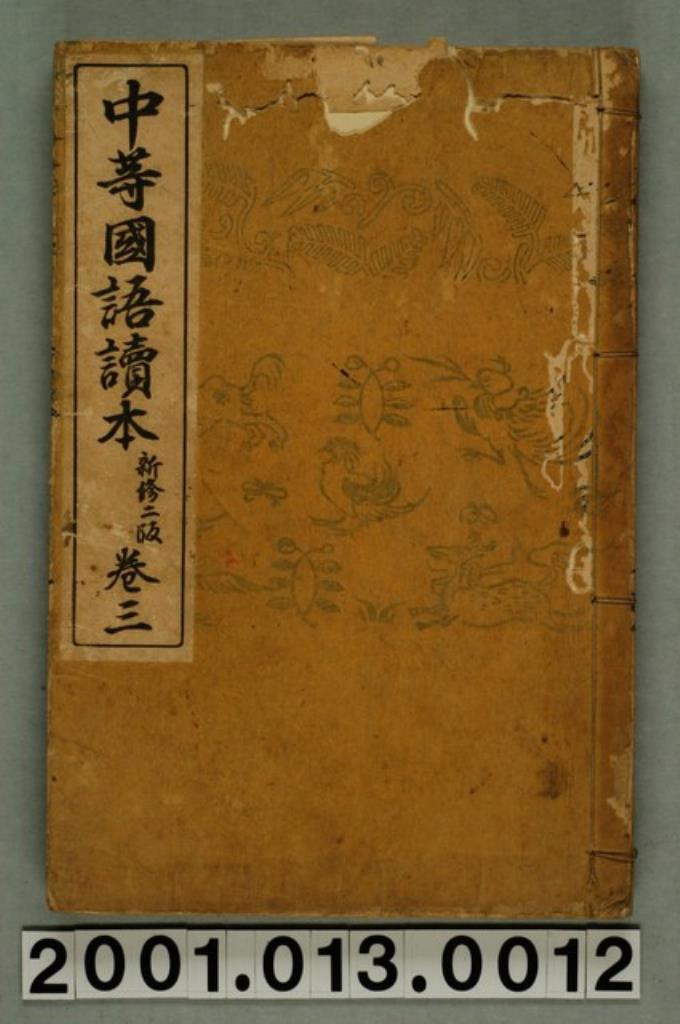 中等國語讀本
新修二版
卷三
2001.013.0012